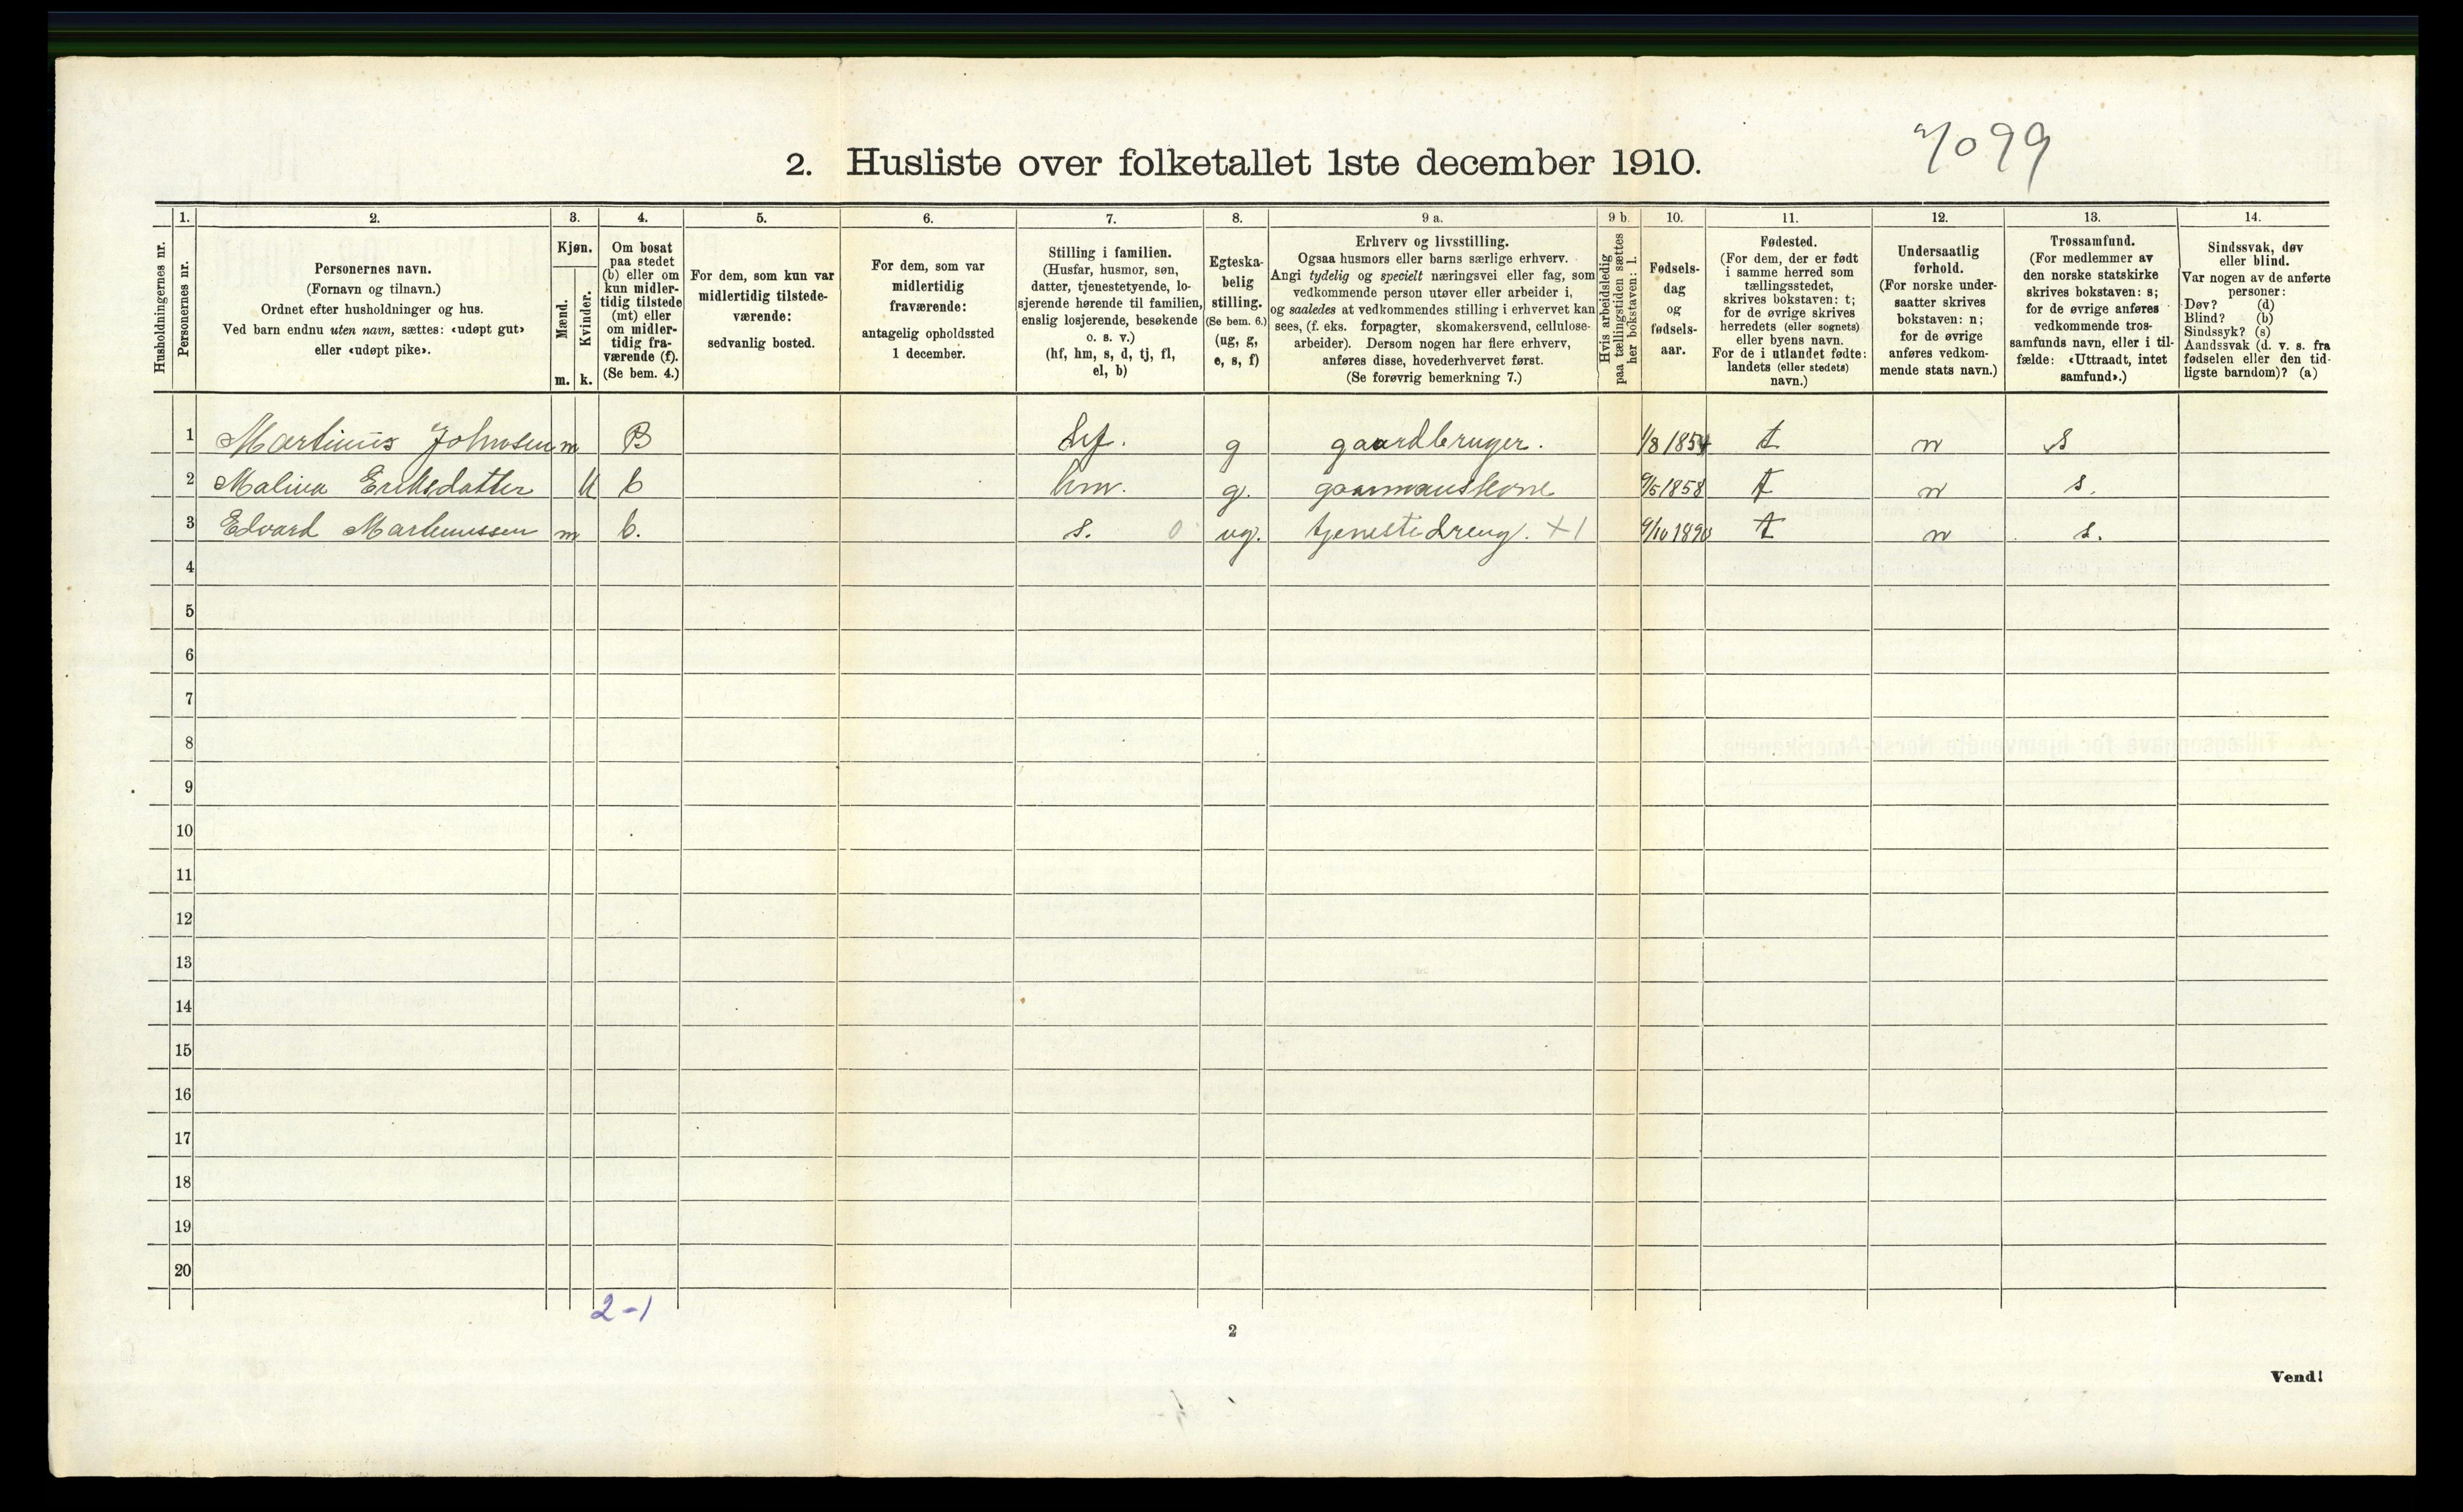 7099
2. Husliste over folketallet 1ste december 1910.
Husholdningernes nr.
1.
Personernes nr.
2.
Personernes navn.
(Fornavn og tilnavn.)
Ordnet efter husholdninger og hus.
Ved barn endnu uten navn, sættes: «udøpt gut»
eller «udøpt pike».
3.
Kjøn.
Mænd.
Kvinder.
m. k.
4.
Om bosat
paa stedet
(b) eller om
kun midler-
tidig tilstede
(mt) eller
om midler-
tidig fra-
værende (f).
(Se bem. 4.)
5.
For dem, som kun var
midlertidig tilstede-
værende:
sedvanlig bosted.
6.
For dem, som var
midlertidig
fraværende:
antagelig opholdssted
1 december.
7.
Stilling i familien.
(Husfar, husmor, søn,
datter, tjenestetyende, lo-
sjerende hørende til familien,
enslig losjerende, besøkende
o. s. v.)
(hf, hm, s, d, tj, fl,
el, b)
8.
Egteska-
belig
stilling.
(Se bem. 6.)
(ug, g,
e, s, f)
9 a.
Erhverv og livsstilling.
Ogsaa husmors eller barns særlige erhverv.
Angi tydelig og specielt næringsvei eller fag, som
vedkommende person utøver eller arbeider i,
og saaledes at vedkommendes stilling i erhvervet kan
sees, (f. eks. forpagter, skomakersvend, cellulose-
arbeider). Dersom nogen har flere erhverv,
anføres disse, hovederhvervet først.
(Se forøvrig bemerkning 7.)
9 b.
Hvis arbeidsledig
paa tællingstiden sættes
her bokstaven: l.
10.
Fødsels-
dag
og
fødsels-
aar.
11.
Fødested.
(For dem, der er født
i samme herred som
tællingsstedet,
skrives bokstaven: t;
for de øvrige skrives
herredets (eller sognets)
eller byens navn.
For de i utlandet fødte:
landets (eller stedets)
navn.)
12.
Undersaatlig
forhold.
(For norske under-
saatter skrives
bokstaven: n;
for de øvrige
anføres vedkom-
mende stats navn.)
13.
Trossamfund.
(For medlemmer av
den norske statskirke
skrives bokstaven: s;
for de øvrige anføres
vedkommende tros-
samfunds navn, eller i til-
fælde: «Uttraadt, intet
samfund».)
14.
Sindssvak, døv
eller blind.
Var nogen av de anførte
personer:
Døv? (d)
Blind? (b)
Sindssyk? (s)
Aandssvak (d. v. s. fra
fødselen eller den tid-
ligste barndom)? (a)
1 Martinus Johnsen m B hf. g gaardbruger. 1/8 1854 t n s
2 Malina Eriksdatter k b hm. g. gaarmanskone 9/5 1858 t n s.
3 Edvard Martinussen m b. s. 0 ug. tjenestedreng. +1 9/10 1890 t n s.
4
5
6
7
8
9
10
11
12
13
14
15
16
17
18
19
20
2-1
2
Vend!